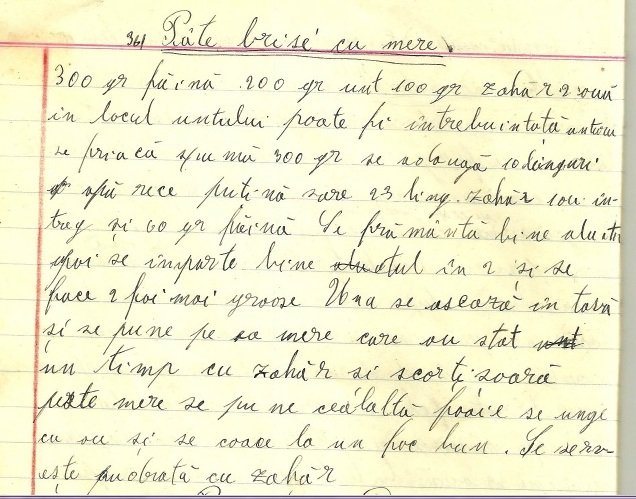 361 Pâte brisé cu mere.
300 gr făină 200 gr unt 100 gr zahăr 2 ouă
in locul untului poate fi întrebuințată untura
se freacă spumă 300 gr se adaugă 10 linguri
apă rece puțină sare 23 ling. zahăr 1 ou in-
treg și 60 gr făină Se frământă bine aluatu
apoi se imparte bine aluatul in 2 și se
face 2 foi mai groase Una se așează in tavă
și se pune pe ea mere care au stat
un timp cu zahăr si scorți șoară
peste mere se pu ne cealaltă foaie se unge
cu ou și se coace la un foc bun. Se serv-
ește pudrată cu zahăr